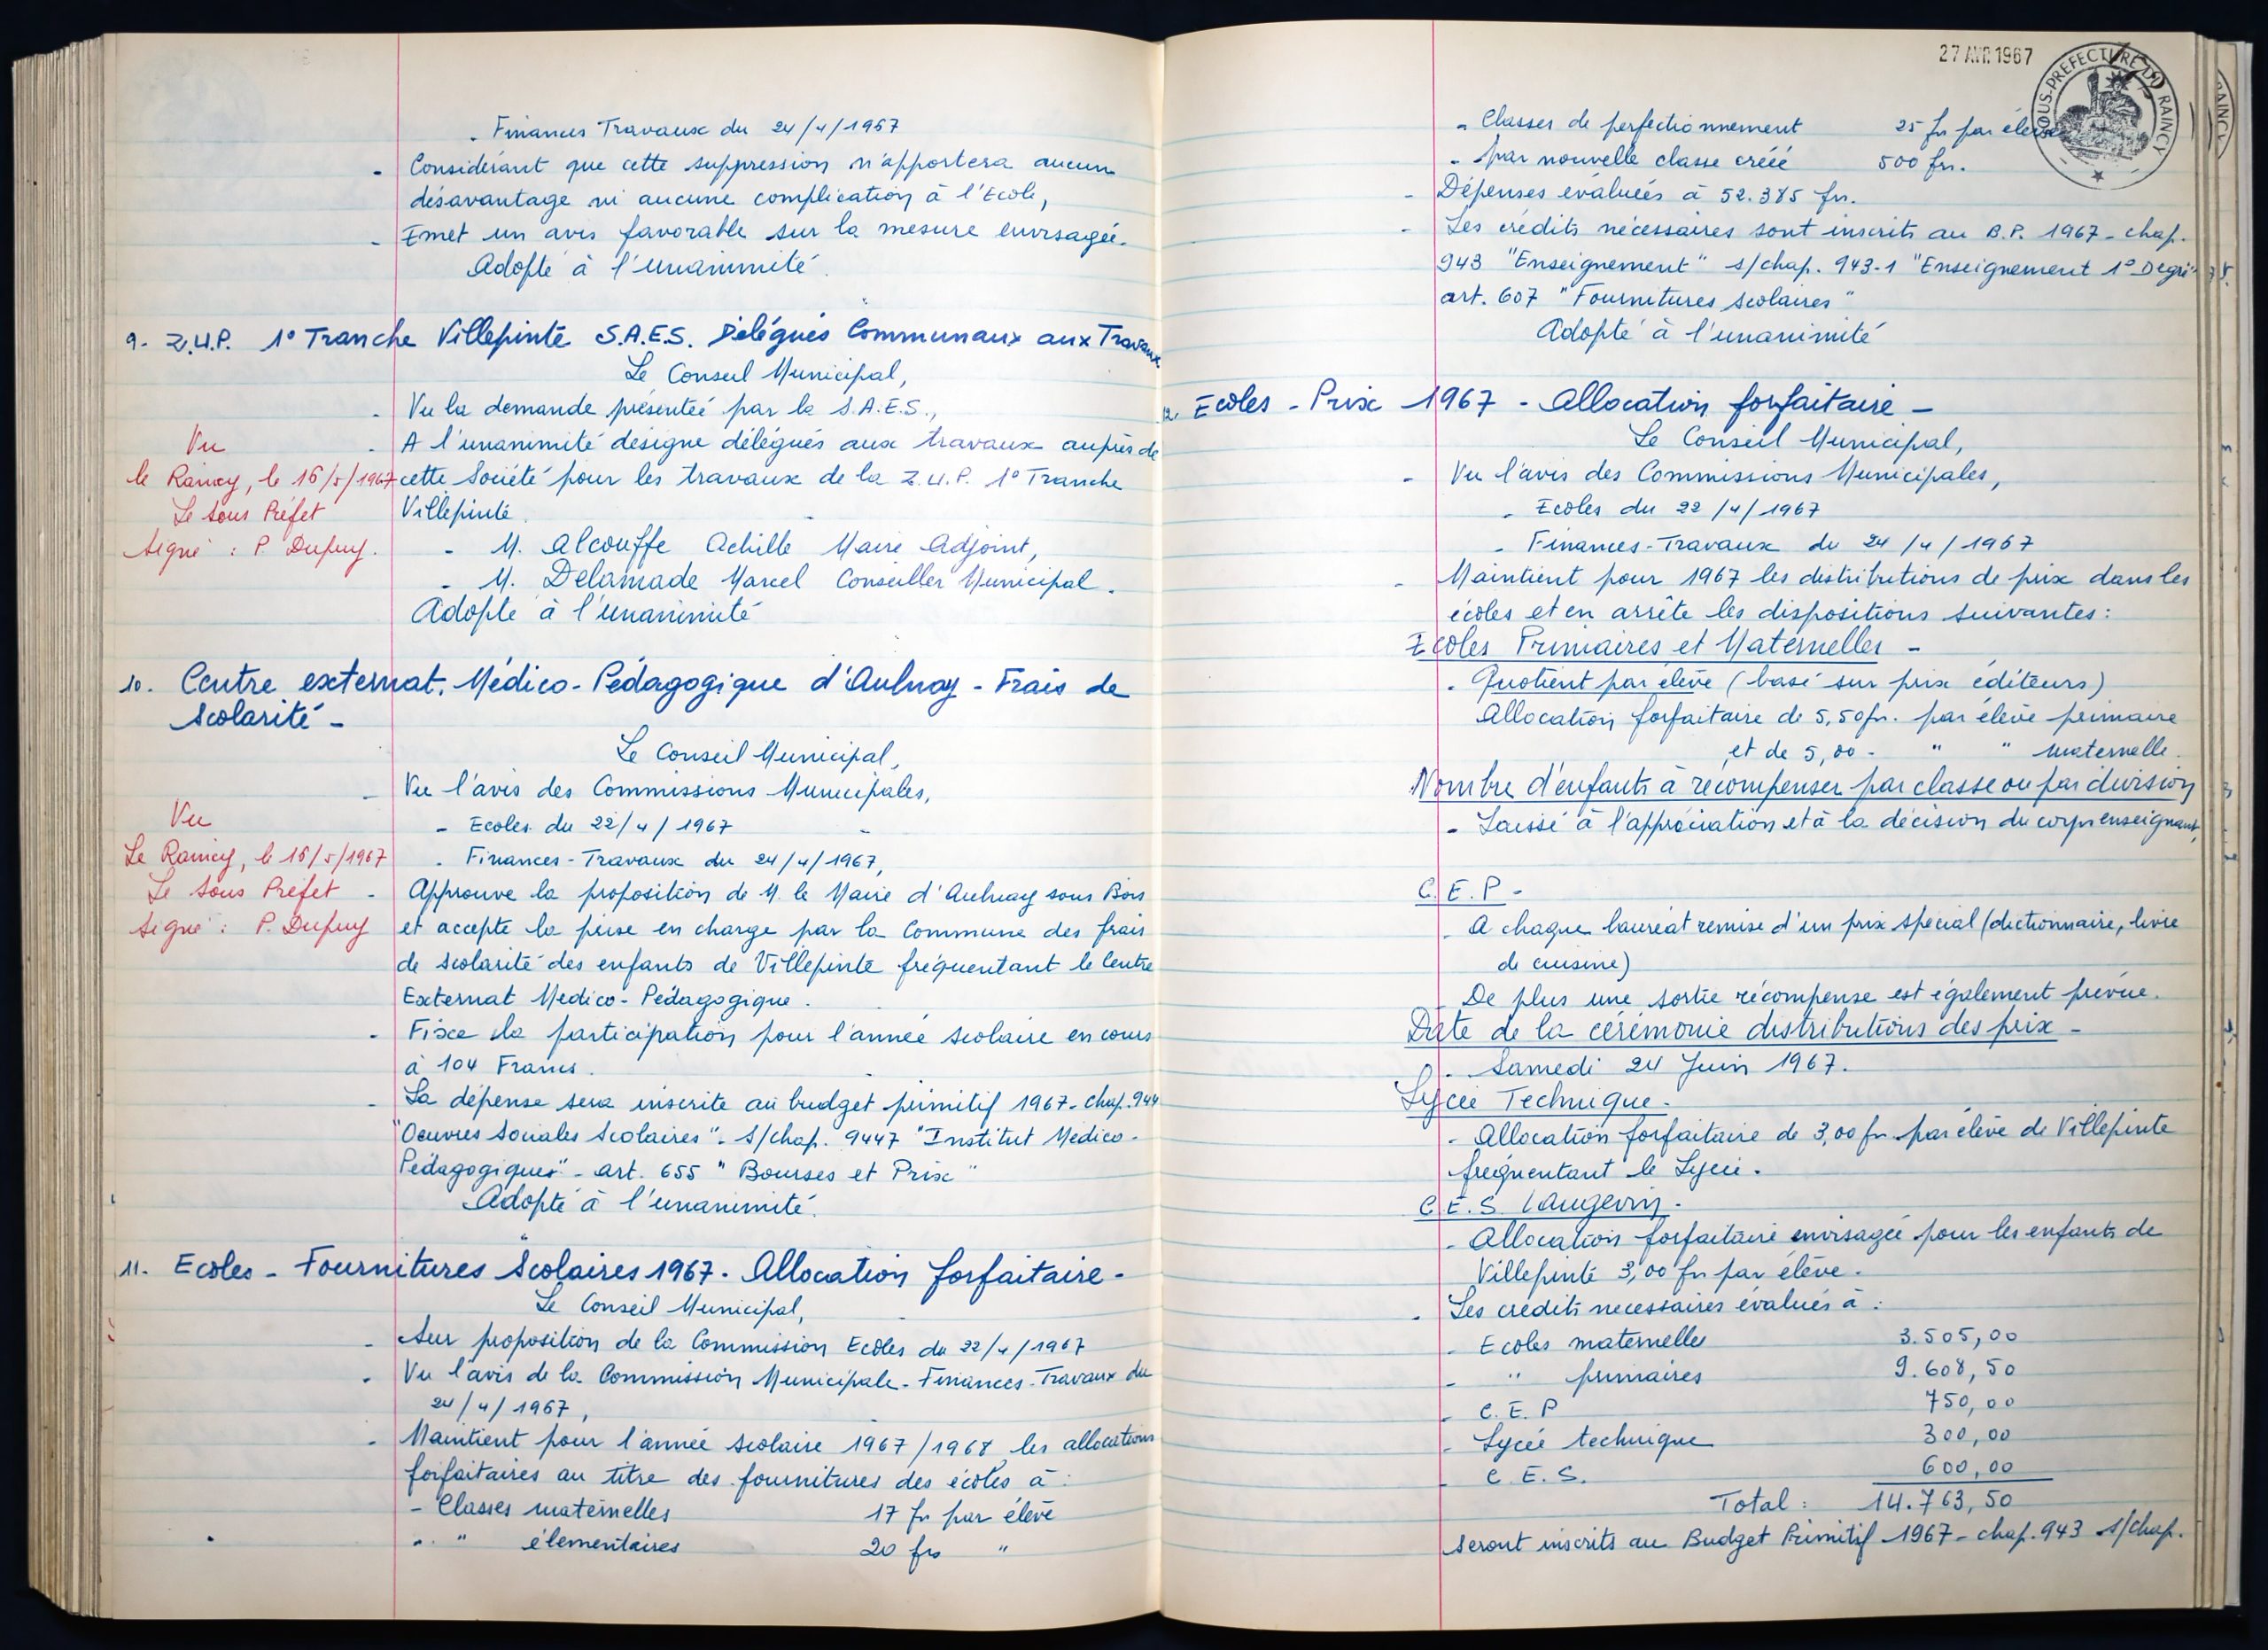 . Finances Travaux du 24/4/1967
- Considérant que cette suppression n'apportera aucun
désavantage ni aucune complication à l'Ecole,
- Emet un avis favorable sur la mesure envisagée.
Adopté à l'unanimité.
9. Z.U.P. 1° Tranche Villepinte S.A.E.S. Délégués Communaux aux Travaux
Le Conseil Municipal,
- Vu la demande présentée par la S.A.E.S.,
- A l'unanimité désigne délégués aux travaux auprès de
cette Société pour les travaux de la Z.U.P. 1° Tranche
Villepinte.
- M. Alcouffe Achille Maire Adjoint,
- M. Delamade Marcel Conseiller Municipal.
Adopté à l'unanimité
Vu
le Raincy, le 16/5/1967
Le Sous Préfet
Signé : P. Dupuy.
10. Centre externat. Médico-Pédagogique d'Aulnay - Frais de
Scolarité -
Le Conseil Municipal,
- Vu l'avis des Commissions Municipales,
- Ecoles du 22/4/1967
. Finances-Travaux du 24/4/1967,
- Approuve la proposition de M. le Maire d'Aulnay sous Bois
et accepte la prise en charge par la Commune des frais
de scolarité des enfants de Villepinte fréquentant le Centre
Externat Medico-Pédagogique.
- Fixe la participation pour l'année scolaire en cours
à 104 Francs.
- La dépense sera inscrite au budget primitif 1967 - chap. 944
"Oeuvres Sociales Scolaires" - s/chap. 9447 "Institut Médico-
Pédagogiques" - art. 655 "Bourses et Prix"
Adopté à l'unanimité.
Vu
Le Raincy, le 16/5/1967
Le Sous Préfet
Signé : P. Dupuy
11. Ecoles - Fournitures Scolaires 1967. Allocation forfaitaire -
Le Conseil Municipal,
- Sur proposition de la Commission Ecoles du 22/4/1967
- Vu l'avis de la Commission Municipale - Finances - Travaux du
24/4/1967,
- Maintient pour l'année scolaire 1967/1968 les allocations
forfaitaires au titre des fournitures des écoles à :
- Classes maternelles 17 fr par élève
- " élémentaires 20 frs "
27 AVR 1967
SOUS-PREFECTURE DU RAINCY
- Classes de perfectionnement 25 fr par élève
- par nouvelle classe créée 500 frs.
- Dépenses évaluées à 52.385 frs.
- Les crédits nécessaires sont inscrits au B.P. 1967 - chap.
943 "Enseignement" s/chap. 943-1 "Enseignement 1° Degré"
art. 607 "Fournitures scolaires"
Adopté à l'unanimité
12. Ecoles - Prix 1967 - Allocation forfaitaire -
Le Conseil Municipal,
- Vu l'avis des Commissions Municipales,
. Ecoles du 22/4/1967
. Finances-Travaux du 24/4/1967
- Maintient pour 1967 les distributions de prix dans les
écoles et en arrête les dispositions suivantes :
Ecoles Primaires et Maternelles -
. Quotient par élève (basé sur prix éditeurs)
Allocation forfaitaire de 5,50 fr. par élève primaire
et de 5,00 - " " maternelle.
Nombre d'enfants à récompenser par classe ou par division
- Laissé à l'appréciation et à la décision du corps enseignant,
C.E.P -
- A chaque lauréat remise d'un prix spécial (dictionnaire, livre
de cuisine)
- De plus une sortie récompense est également prévue.
Date de la cérémonie distributions des prix -
. Samedi 24 Juin 1967.
Lycée Technique -
- Allocation forfaitaire de 3,00 fr par élève de Villepinte
fréquentant le Lycée.
C.E.S. Langevin -
- Allocation forfaitaire envisagée pour les enfants de
Villepinte 3,00 fr par élève.
- Les crédits necessaires évalués à :
- Ecoles maternelles 3.505,00
- " primaires 9.608,50
- C.E.P 750,00
- Lycée technique 300,00
- C.E.S. 600,00
Total : 14.763,50
seront inscrits au Budget Primitif 1967 - chap. 943 s/chap.